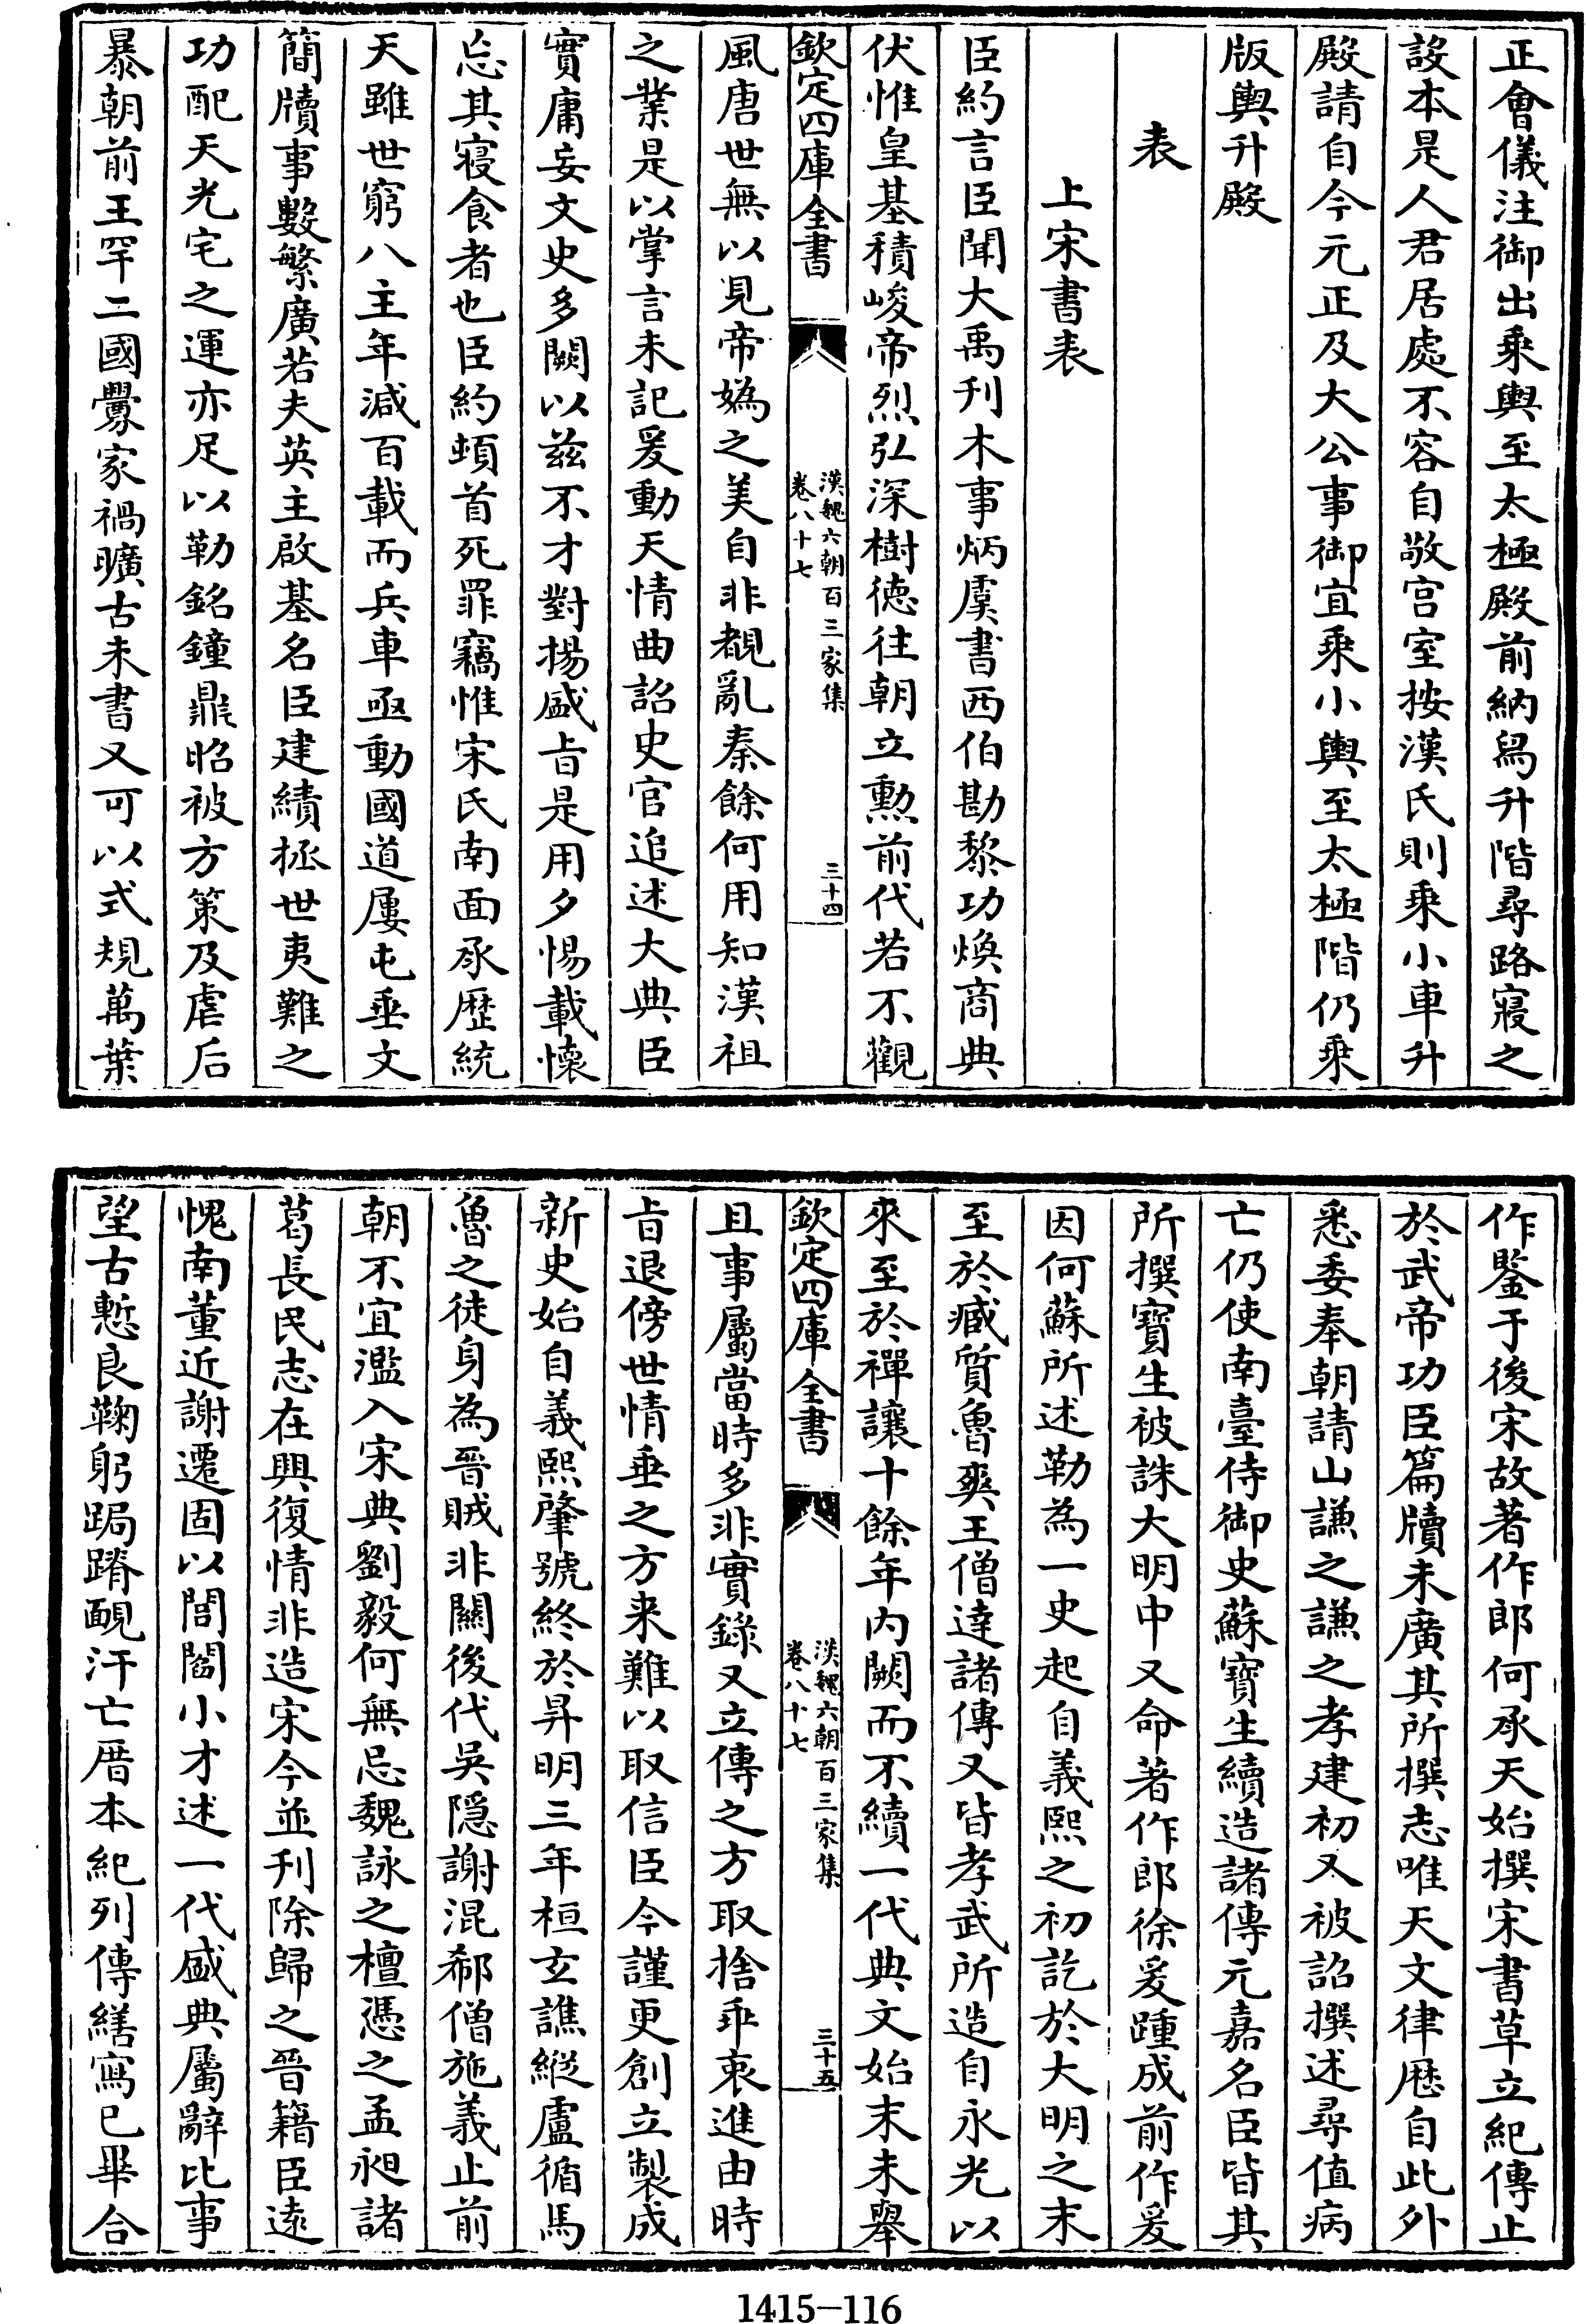 正會儀注御出乘輿至太極殿前納舄升階尋路寢之
設本是人君居處不容自敬宫室按漢氏則乘小車升
殿請自今元正及大公事御宜乘小輿至太極階仍乘
版輿升殿
表
上宋書表
臣約言臣聞大禹刋木事炳虞書西伯勘黎功煥商典
伏惟皇基積峻帝烈弘深樹徳往朝立勲前代若不觀
欽定四庫全書
漢魏六朝百三家集
卷八十七
三十四
風唐世無以見帝媯之美自非覩亂秦餘何用知漢祖
之業是以掌言未記爰動天情曲詔史官追述大典臣
實庸妄文史多闕以兹不才對揚盛㫖是用夕惕載懷
忘其寢食者也臣約頓首死罪竊惟宋氏南面承歴統
天雖世窮八主年減百載而兵車亟動國道屢屯垂文
簡牘事數繁廣若夫英主啟基名臣建績拯世夷難之
功配天光宅之運亦足以勒銘鐘鼎昭被方策及虐后
暴朝前王罕二國釁家禍曠古未書又可以式規萬葉
作鑒于後宋故著作郎何承天始撰宋書草立紀傳止
於武帝功臣篇牘未廣其所撰志唯天文律厯自此外
悉委奉朝請山謙之謙之孝建初又被詔撰述尋值病
亡仍使南臺侍御史蘇寶生續造諸傳元嘉名臣皆其
所撰寶生被誅大明中又命著作郎徐爰踵成前作爰
因何蘇所述勒為一史起自義熙之初訖於大明之末
至於臧質魯爽王僧達諸傳又皆孝武所造自永光以
來至於禪讓十餘年内闕而不續一代典文始末未舉
欽定四庫全書
漢魏六朝百三家集
卷八十七
三十五
且事屬當時多非實錄又立傳之方取捨乖衷進由時
㫖退傍世情垂之方来難以取信臣今謹更創立製成
新史始自義熙肇號終於昇明三年桓玄譙縱盧循馬
魯之徒身為晉賊非關後代吳隱謝混郗僧施義止前
朝不宜濫入宋典劉毅何無忌魏詠之檀憑之孟昶諸
葛長民志在興復情非造宋今並刋除歸之晉籍臣遠
愧南董近謝遷固以閭閻小才述一代盛典屬辭比事
望古慙良鞠躬跼蹐靦汗亡厝本紀列傳繕寫已畢合
1415—116